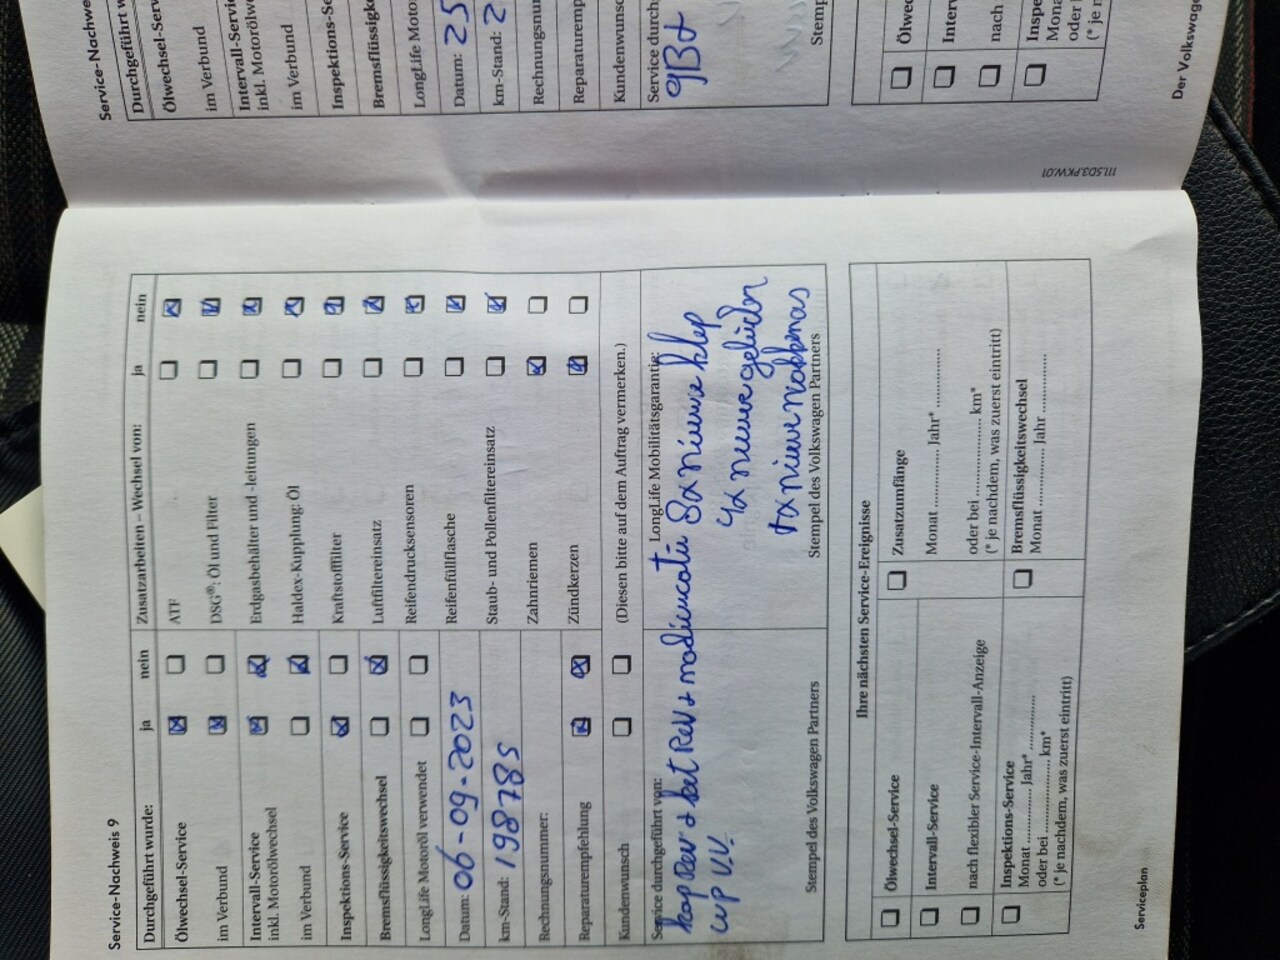 Service-Nachweis 9
Durchgeführt wurde: ja nein
Ölwechsel-Service
im Verbund
Intervall-Service
inkl. Motorölwechsel
im Verbund
Inspektions-Service
Bremsflüssigkeitswechsel
LongLife Motoröl verwendet
Datum: 06-09-2023
km-Stand: 198785
Rechnungsnummer:
Reparaturempfehlung
Kundenwunsch
(Diesen bitte auf dem Auftrag vermerken.)
Zusatzarbeiten – Wechsel von: ja nein
ATF
DSG®: Öl und Filter
Erdgasbehälter und -leitungen
Haldex-Kupplung: Öl
Kraftstofffilter
Luftfiltereinsatz
Reifendrucksensoren
Reifenfüllflasche
Staub- und Pollenfiltereinsatz
Zahnriemen
Zündkerzen
Service durchgeführt von:
LongLife Mobilitätsgarantie:
kop Rev + bet Rev + modificatie 8x nieuwe klep
4x nieuwe geleider
nieuwe nokkenas
Stempel des Volkswagen Partners
Stempel des Volkswagen Partners
Ihre nächsten Service-Ereignisse
Ölwechsel-Service
Intervall-Service
nach flexibler Service-Intervall-Anzeige
Inspektions-Service
Monat .................. Jahr* ..................
oder bei .................. km*
(* je nachdem, was zuerst eintritt)
Zusatzumfänge
Monat .................. Jahr* ..................
oder bei .................. km*
(* je nachdem, was zuerst eintritt)
Bremsflüssigkeitswechsel
Monat .................. Jahr ..................
Serviceplan
111.5D3.PKW.01
Service-Nachwe
Durchgeführt w
Ölwechsel-Serv
im Verbund
Intervall-Servi
inkl. Motorölw
im Verbund
Inspektions-Se
Bremsflüssigke
LongLife Moto
Datum: 25
km-Stand: 2
Rechnungsnu
Reparaturemp
Kundenwunsc
Service durch
gBt
Stemp
Ölwec
Interv
nach
Inspe
Mona
oder
(* je n
Der Volkswage